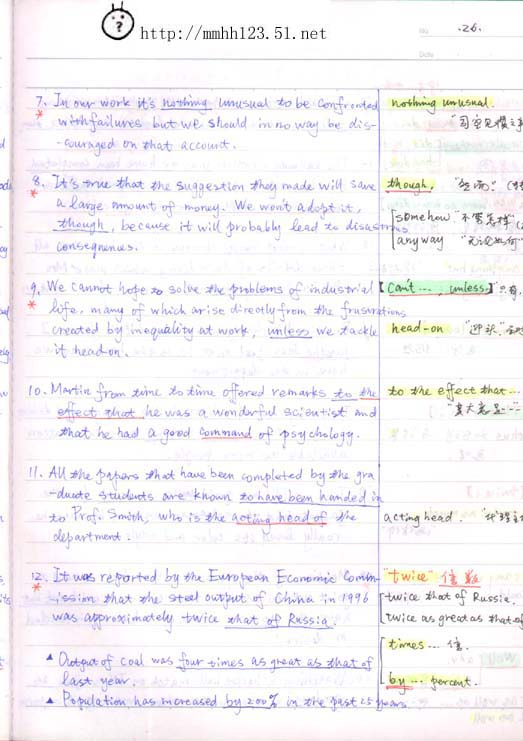 http://mmhh123.51.net
No. 26.
Date
7. In our work it's nothing unusual to be confronted
nothing unusual.
with failures but we should in no way be dis-
-couraged on that account.
8. It's true that the suggestion they made will save
though,
a large amount of money. We won't adopt it,
though, because it will probably lead to disastrous
somehow "不管怎样"
consequences.
anyway "无论如何"
9. We cannot hope to solve the problems of industrial
【Can't ..., unless】
life, many of which arise directly from the frustrations
created by inequality at work, unless we tackle
head-on
it head-on.
10. Martin from time to time offered remarks to the
to the effect that...
effect that he was a wonderful scientist and
"其大意是..."
that he had a good command of psychology.
11. All the papers that have been completed by the gra-
-duate students are known to have been handed in
to Prof. Smith, who is the acting head of the
acting head.
department.
12. It was reported by the European Economic Comm-
"twice" 倍数
-ission that the steel output of China in 1996
twice that of Russia.
was approximately twice that of Russia.
twice as great as that of
▲ Output of coal was four times as great as that of
times ... 倍
last year.
by ... percent.
▲ Population has increased by 200% in the past 25 years.